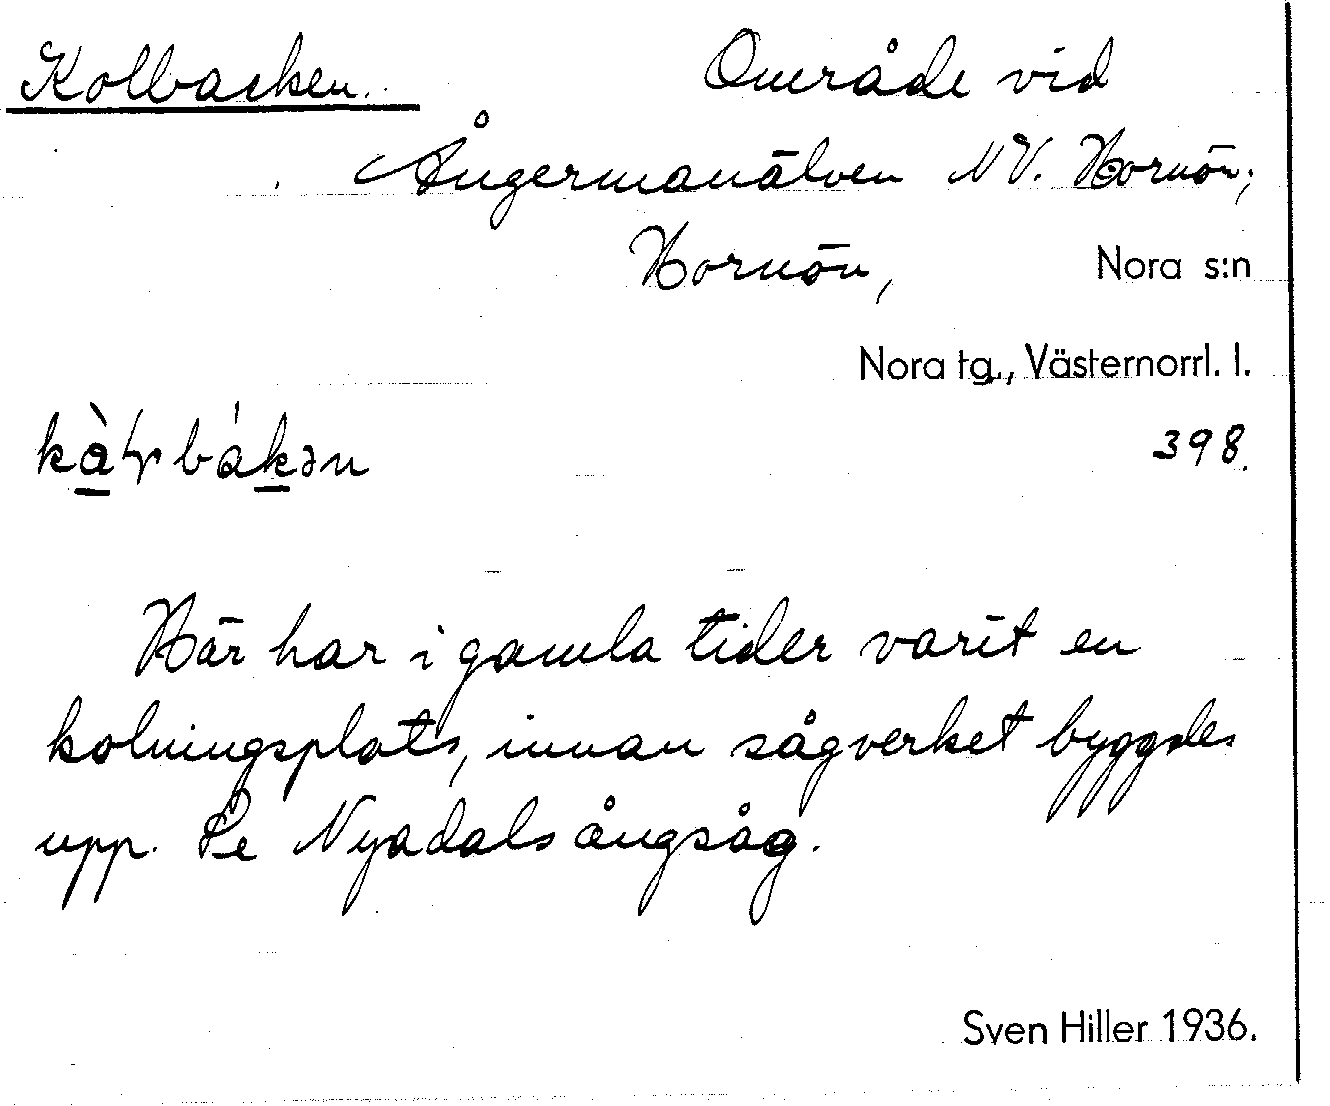 Kolbacken. Område vid
Ångermanälven NV. Hornön;
Hornön, Nora s:n
Nora tg., Västernorrl. l.
398.
Här har i gamla tider varit en
kolningsplats, innan sågverket byggdes
upp. Se Nyadals ångsåg.
Sven Hiller 1936.